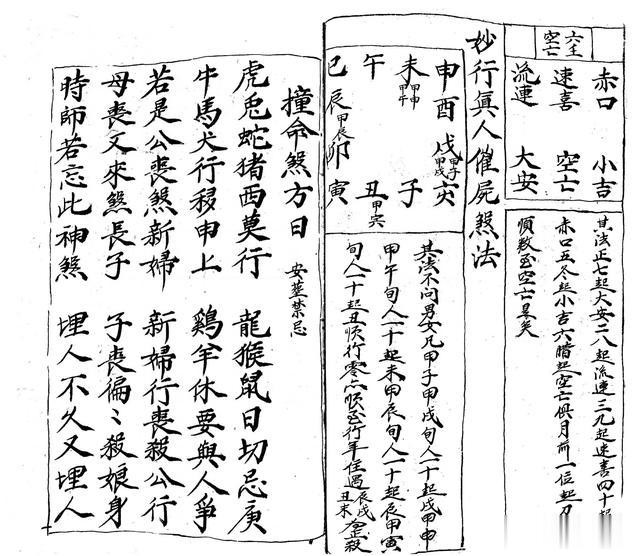 六壬空亡
赤口 小吉
速喜 空亡
流連 大安
其法正七起大安二八起流連三九起速喜四十起
赤口五冬起小吉六腊起空亡俱月前一位起初
順数至空亡是矣
妙行真人催屍煞法
申 酉 戌甲子甲戌 亥
未甲申甲午 子
午 丑甲寅
巳 辰甲辰 卯 寅
其法不問男女凡甲子甲戌旬人一十起戌甲申
甲午旬人一十起未甲辰旬人一十起辰甲寅
旬人一十起丑順行零亦順至行年住遇辰戌丑未金殺
撞命煞方日 安葬禁忌
虎兎蛇猪西莫行 龍猴鼠日切忌庚
牛馬犬行移申上 鷄羊休要與人爭
若是公喪煞新婦 新婦行喪殺公行
母喪丈來煞長子 子喪偏〻殺娘身
時師若忘此神煞 埋人不久又埋人